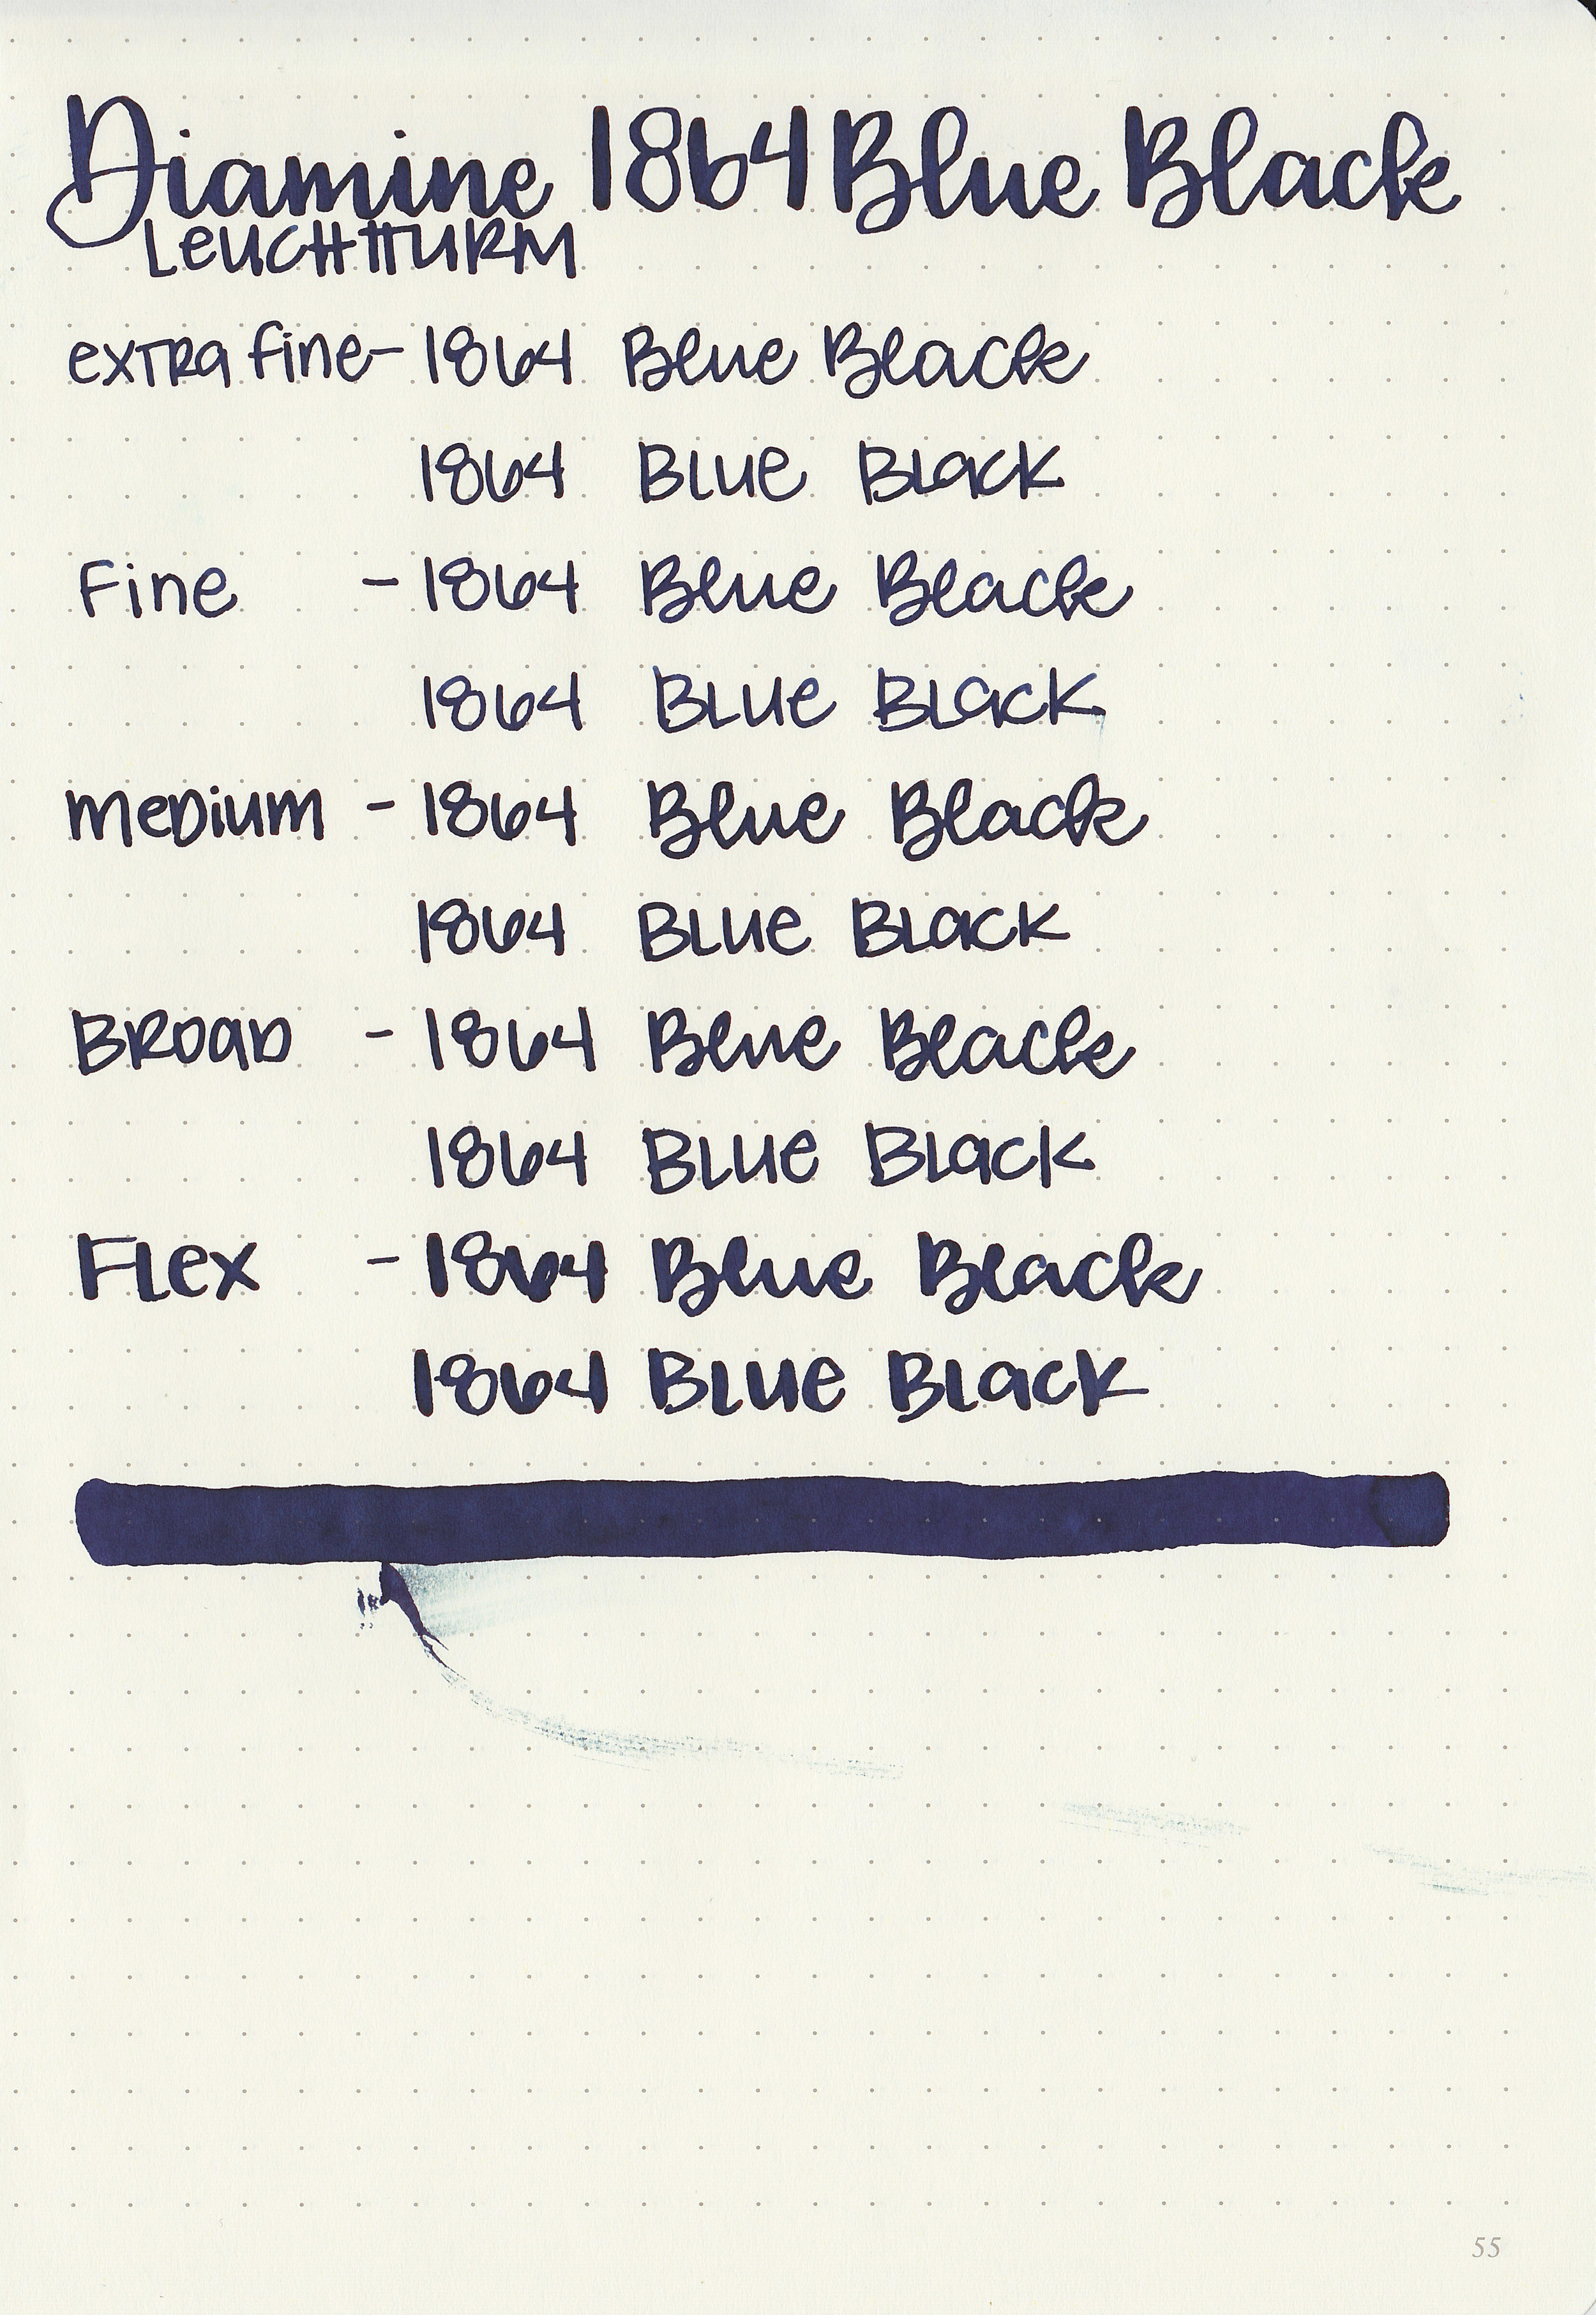 Diamine 1864 Blue Black
LEUCHTTURM
extra fine - 1864 Blue Black
1864 Blue Black
Fine - 1864 Blue Black
1864 Blue Black
Medium - 1864 Blue Black
1864 Blue Black
Broad - 1864 Blue Black
1864 Blue Black
Flex - 1864 Blue Black
1864 Blue Black
55